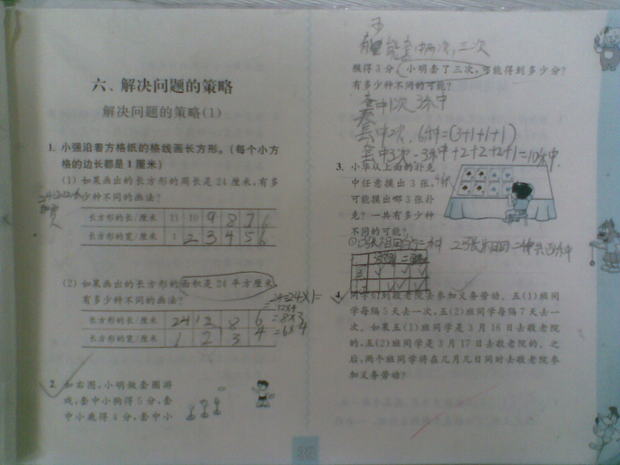 六、解决问题的策略
解决问题的策略(1)
1. 小强沿着方格纸的格线画长方形。(每个小方
格的边长都是 1 厘米)
(1) 如果画出的长方形的周长是 24 厘米,有多
少种不同的画法?
长方形的长/厘米 11 10 9 8 7 6
长方形的宽/厘米 1 2 3 4 5 6
(2) 如果画出的长方形的面积是 24 平方厘米,
有多少种不同的画法?
24=24×1=
=12×2
=8×3
=6×4
长方形的长/厘米 24 12 8 6
长方形的宽/厘米 1 2 3 4
2. 如右图,小明做套圈游
戏,套中小狗得 5 分,套
中小鹿得 4 分,套中小
猴得 3 分,小明套了三次,可能得到多少分?
有多少种不同的可能?
套中1次 3种
套中2次 6种=(3+1+1+1)
套中3次
3. 小华从上面的扑克
中任意摸出 3 张,
可能摸出哪 3 张扑
克?一共有多少种
不同的可能?
4. 同学们到敬老院去参加义务劳动。五(1)班同
学每隔 5 天去一次,五(2)班同学每隔 7 天去一
次。如果五(1)班同学是 3 月 16 日去敬老院
的,五(2)班同学是 3 月 17 日去敬老院的。之
后,两个班同学将在几月几日同时去敬老院参
加义务劳动?